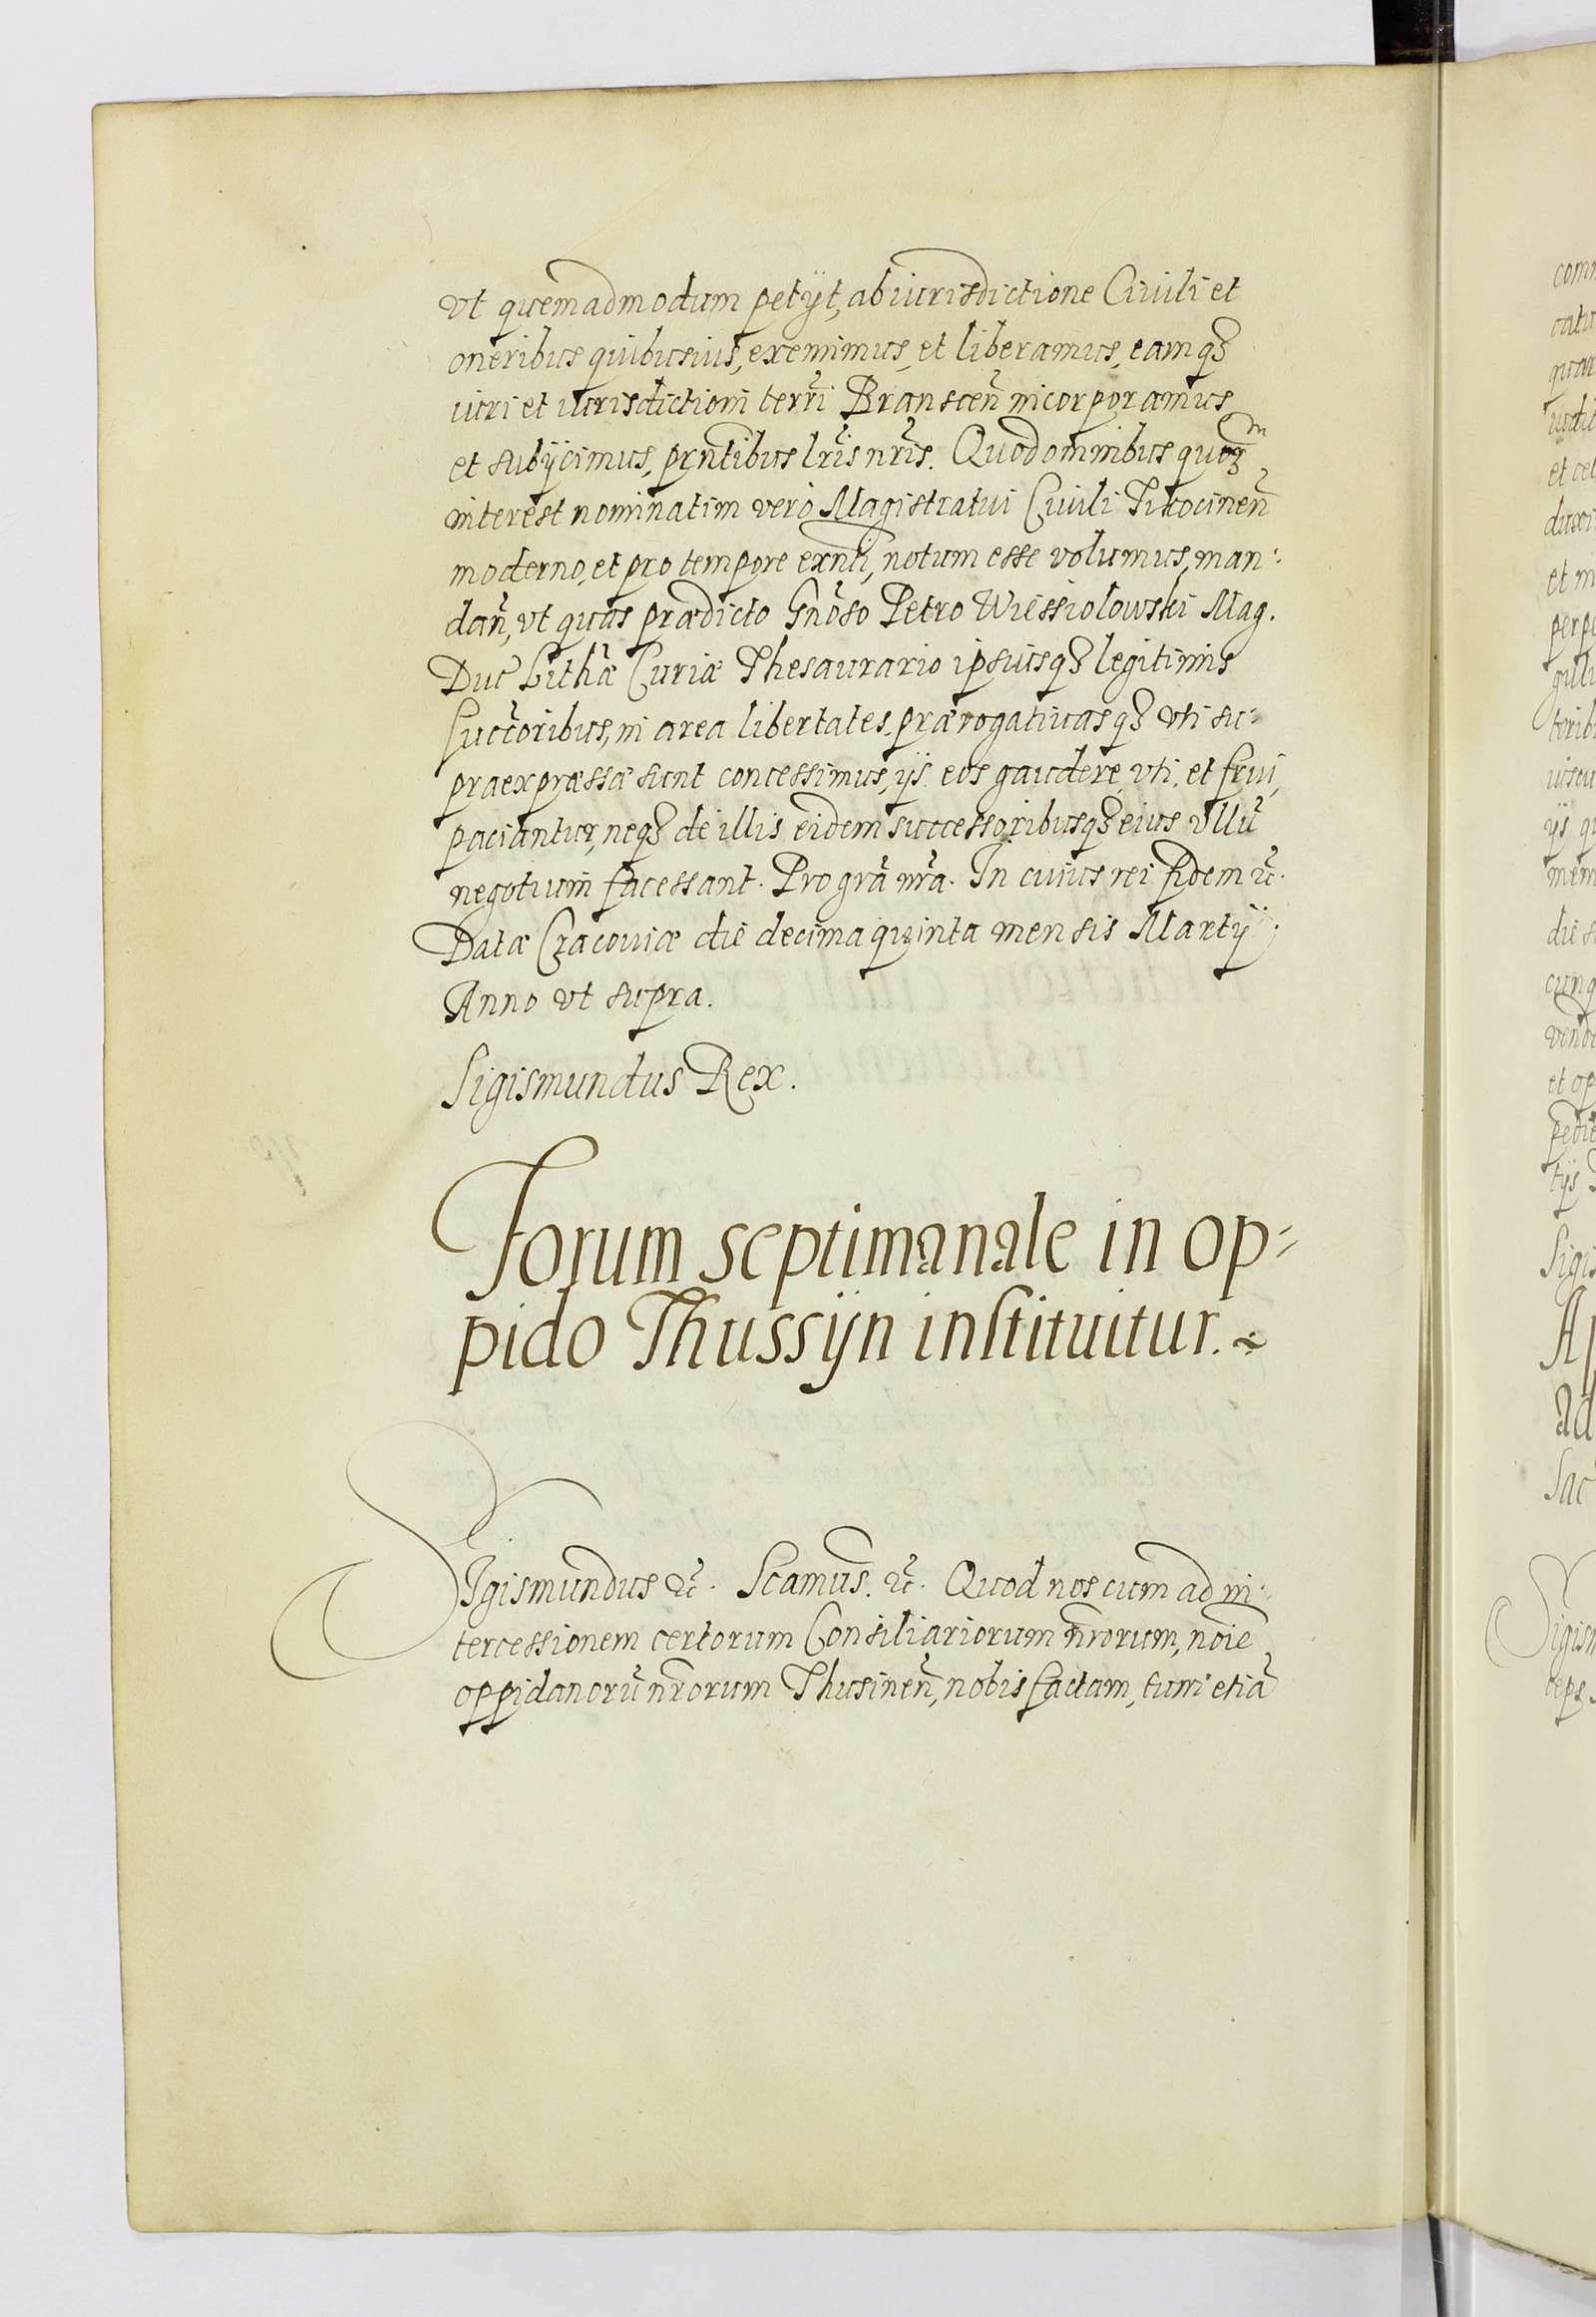 vt quemadmodum petyt, ab iurisdictione Ciuili et
oneribus quibusuis, exemimus, et liberamus, eamq3
iuri et iurisdictioni terrĩ Branscen̄ incorporamus
et subÿcimus, prn̄tibus lrĩs nrĩs. Quod omnibus quorum
interest nominatim vero Magistratui Ciuili Ticocinen̄
moderno, et pro tempore exn̄ti, notum esse volumus, man:
dan̄, vt quas prædicto Gn̄oso Petro Wiessiolowski Mag.
Duc̃ Lithæ̃ Curiæ Thesaurario ipsuisq3 legitimis
succ̃oribus, in area libertates, prærogatiuasq3 vti su-
praexpræssæ sunt concessimus, ÿs. eos gaudere, vti, et frui,
paciantur, neq3 de illis eidem successoribusq3 eius vllũ
negotium facessant. Pro grã nrã. In cuius rei fidem &c.
Datæ Cracouiæ die decima quinta mensis Martÿ
Anno vt supra.
Sigismundus Rex.
Forum septimanale in op-
pido Thussijn instituitur.
SIgismundus &c. Scamus. &c. Quod nos cum ad in:
tercessionem certorum Consiliariorum nr̄orum, noĩe
oppidanorũ nr̄orum Thusinen̄, nobis factam, tum etiã
comm
et cel
et m
perpe
ÿs
mem
cunq
et op
tÿs
Sigis
Ap
ad
Sac
Sigism